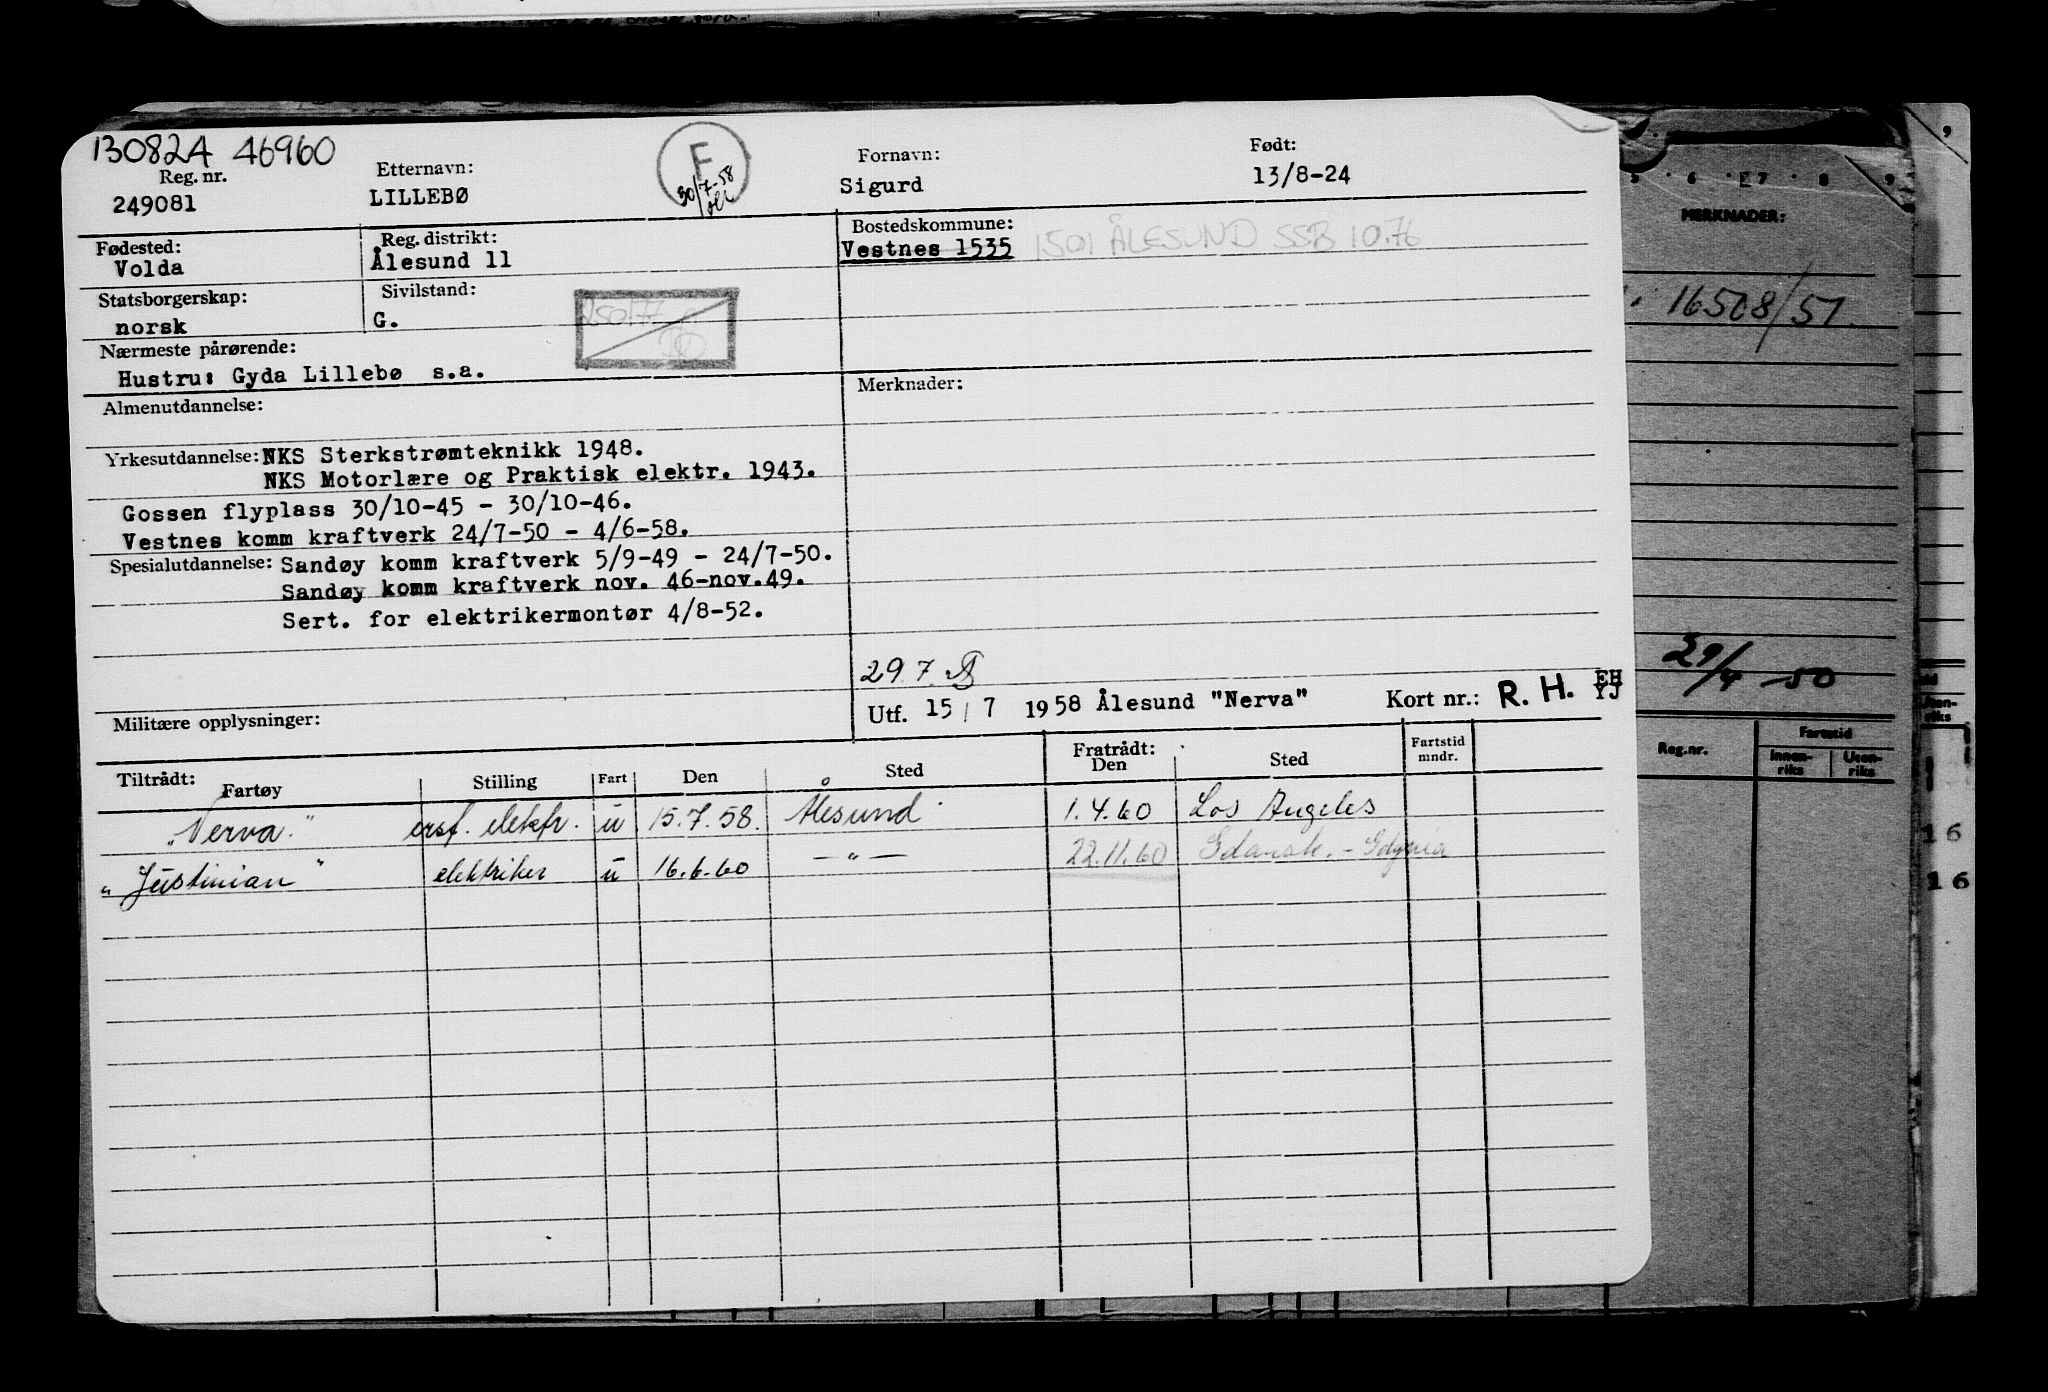 130824 46960
Reg. nr. Etternavn: F Fornavn: Født:
249081 LILLEBØ 30/7-58 Sigurd 13/8-24
Fødested: Reg. distrikt: Bostedskommune:
Volda Ålesund 11 Vestnes 1535 1501 ÅLESUND SSB 10.76
Statsborgerskap: Sivilstand:
norsk G. 250177
Nærmeste pårørende:
Hustru: Gyda Lillebø s.a.
Almenutdannelse: Merknader:
Yrkesutdannelse: NKS Sterkstrømteknikk 1948.
NKS Motorlære og Praktisk elektr. 1943.
Gossen flyplass 30/10-45 - 30/10-46.
Vestnes komm kraftverk 24/7-50 - 4/6-58.
Spesialutdannelse: Sandøy komm kraftverk 5/9-49 - 24/7-50.
Sandøy komm kraftverk nov. 46-nov.49.
Sert. for elektrikermontør 4/8-52.
29.7.
Militære opplysninger: Utf. 15/7 1958 Ålesund "Nerva" Kort nr.: R. H. EH YJ
Tiltrådt: Fartøy Stilling Fart Den Sted Fratrådt: Den Sted Fartstid mndr.
"Nerva." ersf. elektr. u 15.7.58. Ålesund 1.4.60 Los Angeles
"Justinian" elektriker u 16.6.60 — " — 22.11.60 Gdansk. - Gdynia
6 7 8 9
MERKNADER:
16508/51
29/4 50
Reg.nr. Fartstid
Innen-riks Uten-riks
9
Uten-riks
16
16